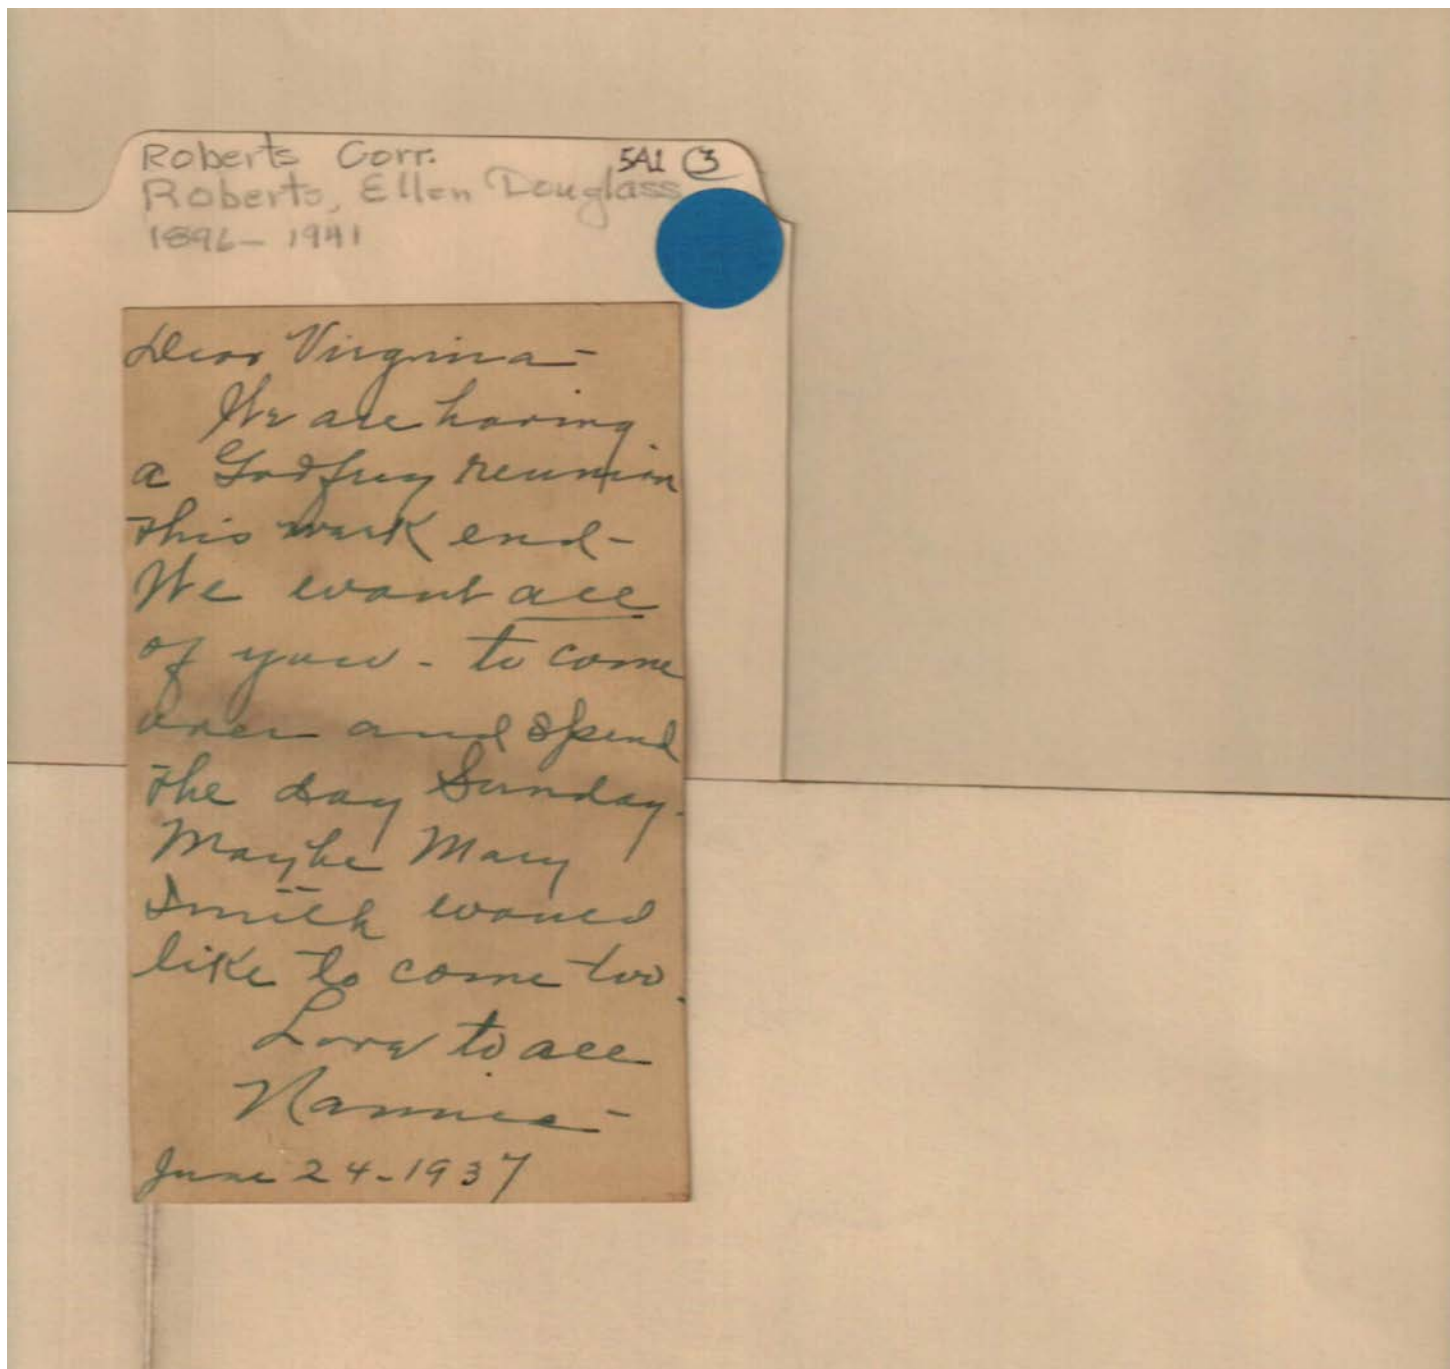 Roberts Corr. 5A1 3
Roberts, Ellen Douglass
1896-1941
Dear Virginia-
We are having
a Godfrey reunion
this week end-
We want all
of you - to come
over and spend
the day Sunday.
Maybe Mary
Smith would
like to come too.
Love to all
Nannie-
June 24-1937